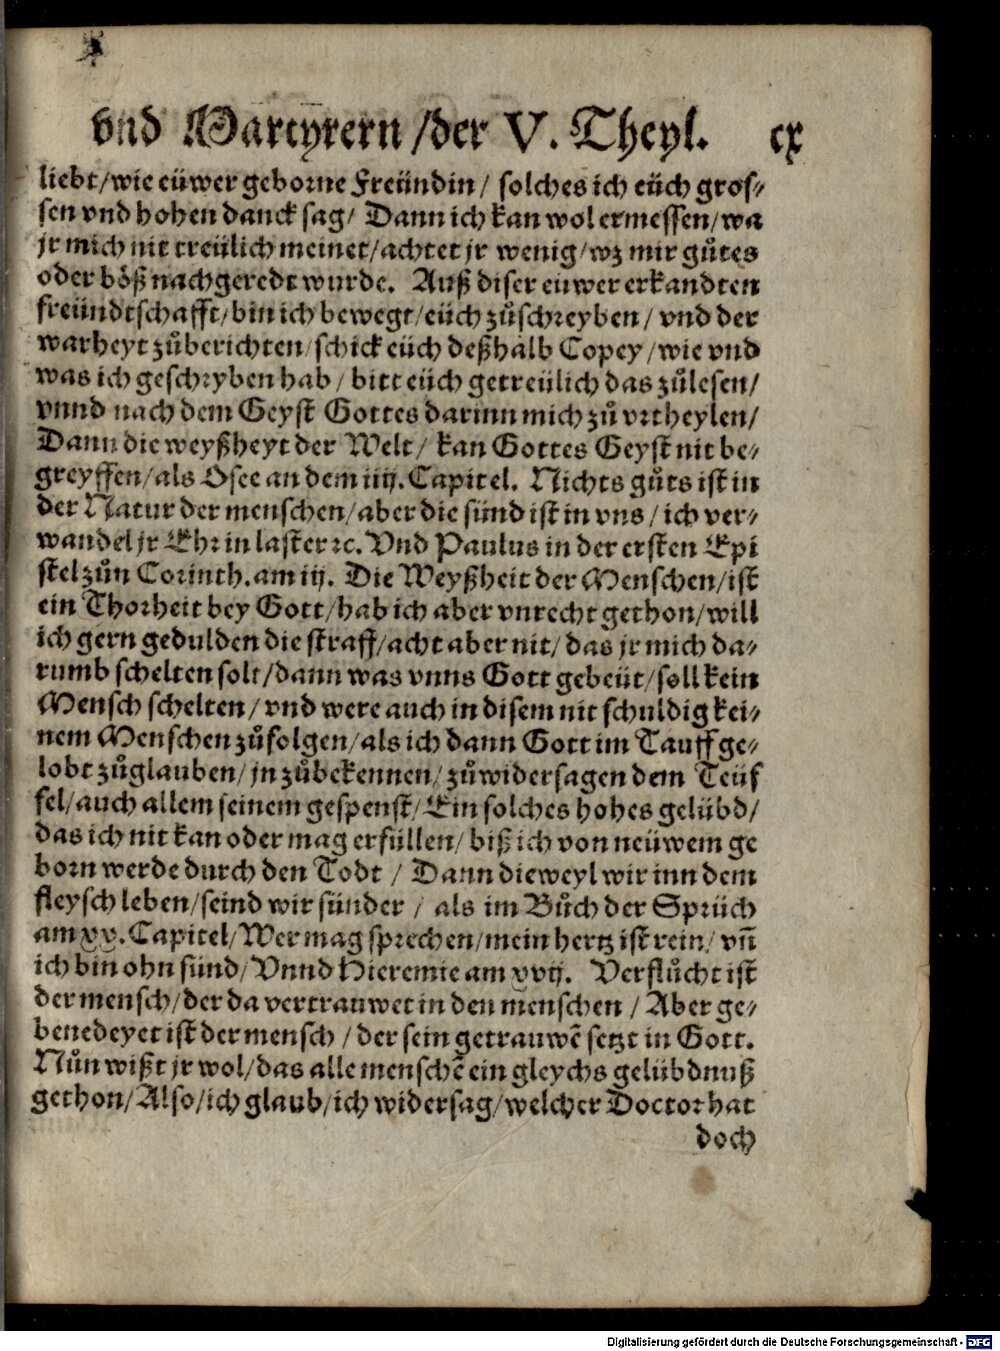 vnd Martyrern /der V. Theyl. cx
liebt/wie eüwer geborne Freündin/ solches ich eüch gros⸗
sen vnd hohen danck sag/ Dann ich kan wol ermessen/wa
jr mich nit treülich meinet/achtet jr wenig/wz mir gůtes
oder böß nachgeredt wurde. Auß diser euwer erkandten
freündtschafft/bin ich bewegt/eüch zůschreyben/ vnd der
warheyt zůberichten/schick eüch deßhalb Copey/wie vnd
was ich geschryben hab/ bitt eüch getreülich das zůlesen/
vnnd nach dem Geyst Gottes darinn mich zů vrtheylen/
Dann die weyßheyt der Welt/ kan Gottes Geyst nit be⸗
greyffen/als Osee an dem iiij. Capitel. Nichts gůts ist in
der Natur der menschen/aber die sünd ist in vns/ich ver⸗
wandel jr Ehr in laster ⁊c. Vnd Paulus in der ersten Epi
stel zůn Corinth. am iij. Die Weyßheit der Menschen/ist
ein Thorheit bey Gott/hab ich aber vnrecht gethon/will
ich gern gedulden die straff/acht aber nit/das jr mich da⸗
rumb schelten solt/dann was vnns Gott gebeüt/soll kein
Mensch schelten/vnd were auch in disem nit schuldig kei⸗
nem Menschen zůfolgen/als ich dann Gott im Tauff ge⸗
lobt zůglauben/jn zůbekennen/zůwidersagen dem Teüf
fel/auch allem seinem gespenst/Ein solches hohes gelübd/
das ich nit kan oder mag erfüllen/biß ich von neüwem ge
born werde durch den Todt / Dann dieweyl wir inn dem
fleysch leben/seind wir sünder / als im Bůch der Sprüch
am xx. Capitel/Wer mag sprechen/mein hertz ist rein/ vñ
ich bin ohn sünd/Vnnd Hieremie am xvij. Verflůcht ist
der mensch/der da vertrauwet in den menschen / Aber ge⸗
benedeyet ist der mensch / der sein getrauwẽ setzt in Gott.
Nůn wißt jr wol/das alle menschẽ ein gleychs gelübdnuß
gethon/Also/ich glaub/ich widersag/welcher Doctor hat
doch
Digitalisierung gefördert durch die Deutsche Forschungsgemeinschaft - DFG